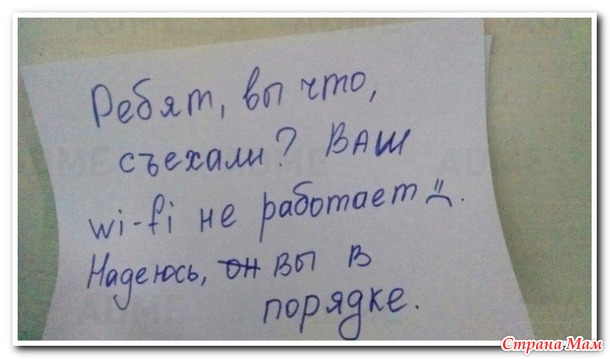 Ребят, вы что,
съехали? Ваш
wi-fi не работает =(.
Надеюсь, он вы в
порядке.
Страна Мам